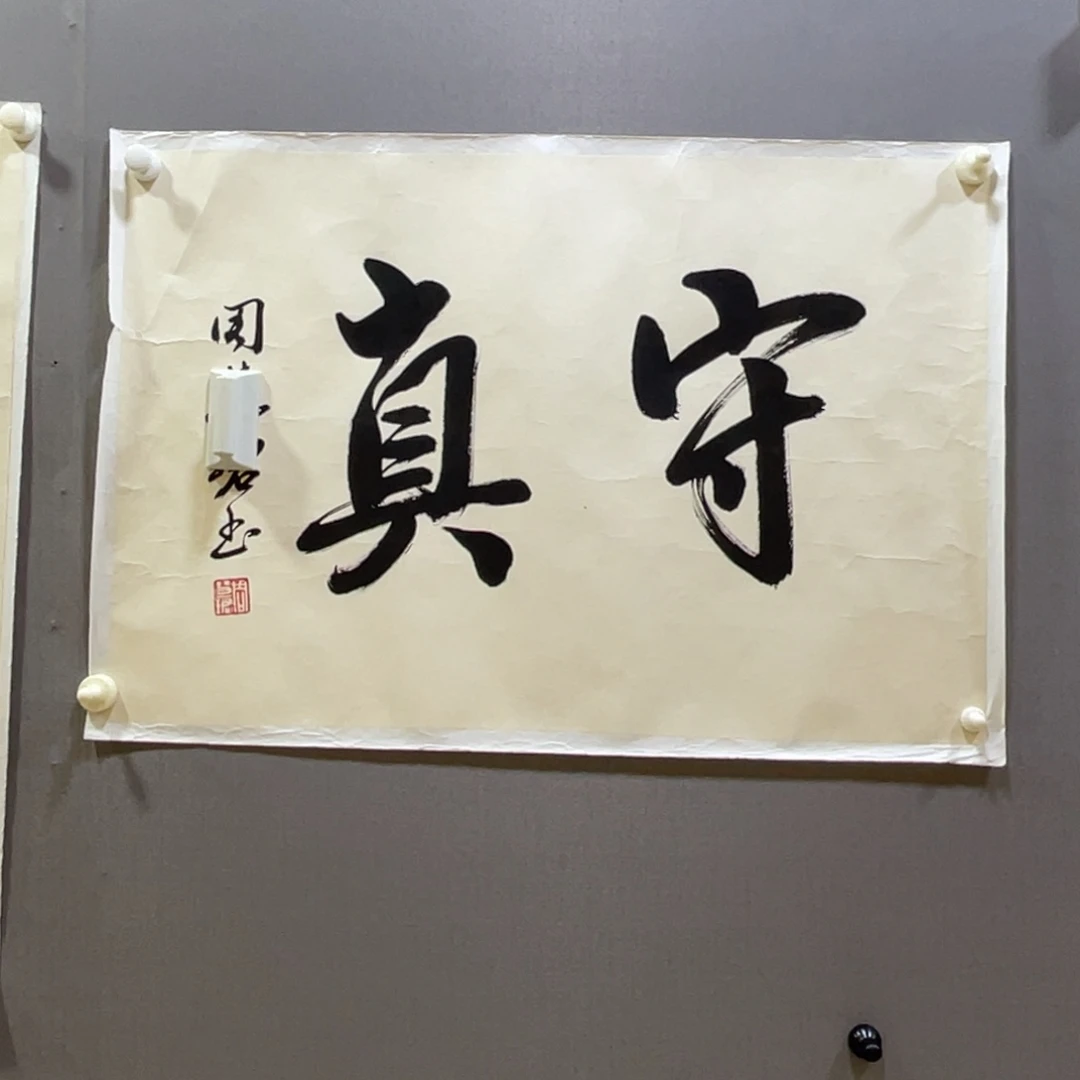 守真
周
书